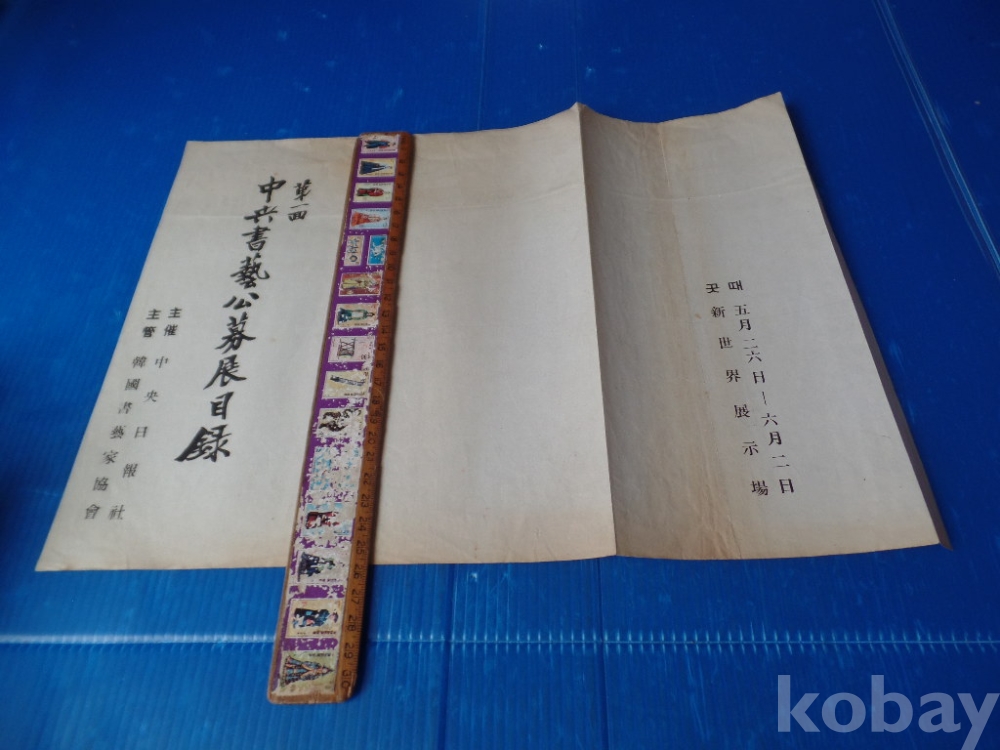 第一回
中央書藝公募展目録
主催 中央日報社
主管 韓國書藝家協會
때 五月二六日—六月二日
곳 新世界展示場
kobay